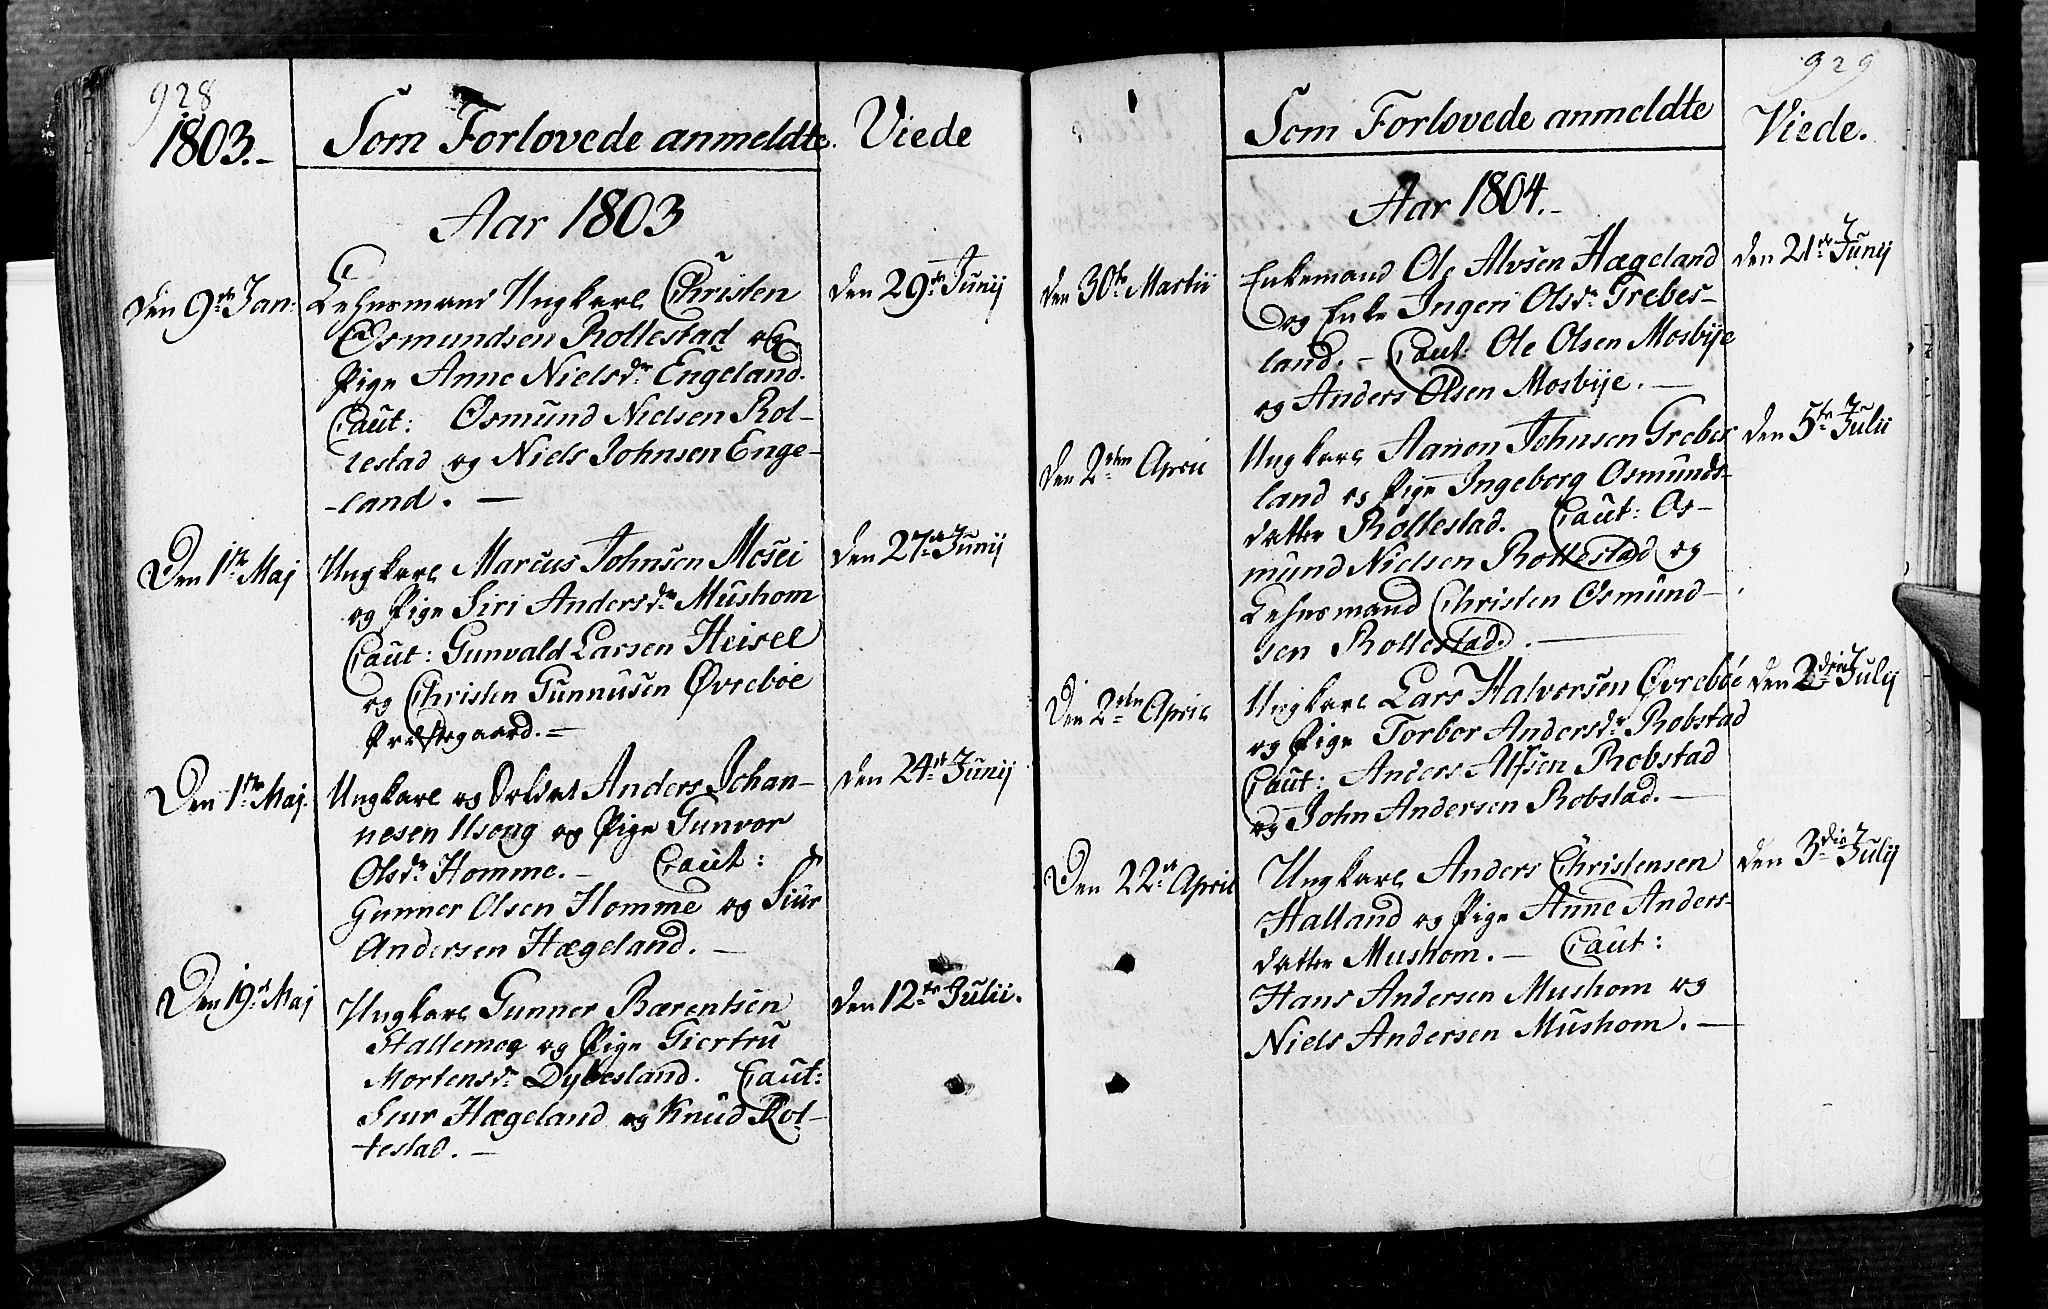 928
1803.-
Som Forlovede anmeldte.
Viede
Aar 1803
Den 9de Jan:
Lehnsmand Ungkarl Christen
Osmundsen Rollestad og
Pige Anne Nielsdr Engeland.
Caut: Osmund Nielsen Rol-
lestad og Niels Johnsen Enge-
-land. -
den 29de Junij
Den 1te Maj
Ungkarl Marcus Johnsen Mosei
og Pige Siri Andersdr Mushom
Caut: Gunvald Larsen Heisel
og Christen Gunnusen Øvrebøe
Præstegaard. =
den 27de Junij
Den 1te Maj.
Ungkarl og Soldat Anders Johan-
nesen Usong og Pige Gunvor
Olsdr Homme. - Caut:
Gunner Olsen Homme og Siur
Andersen Hægeland. -
den 24de Junij
Den 19de Maj
Ungkarl Gunner Bærentsen
Stallemoe og Pige Giertru
Mortensdr Dybesland. Caut:
Siur Hægeland og Knud Rol-
lestad. -
den 12te Julii.
929
Som Forlovede anmeldte
Viede.
Aar 1804.-
den 30te Martii
Enkemand Ole Alvsen Hægeland
og Enke Ingeri Olsdr Grebes-
land. - Caut: Ole Olsen Mosbÿe
og Anders Olsen Mosbÿe. -
den 21de Junij
den 2den April
Ungkarl Aanon Johnsen Grebes
land og Pige Ingeborg Osmunds-
datter Rollestad. Caut: Os-
mund Nielsen Rollestad og
Lehnsmand Christen Osmund-
sen Rollestad. -
den 5te Julii
Den 2den April
Ungkarl Lars Halvorsen Øvrebøe
og Pige Torbor Andersdr Robstad
Caut: Anders Alfsen Robstad
og John Andersen Robstad. -
den 3die Julij
Den 22de April
Ungkarl Anders Christensen
Halland og Pige Anne Anders-
datter Mushom. - Caut:
Hans Andersen Mushom og
Niels Andersen Mushom. -
den 3die Julij